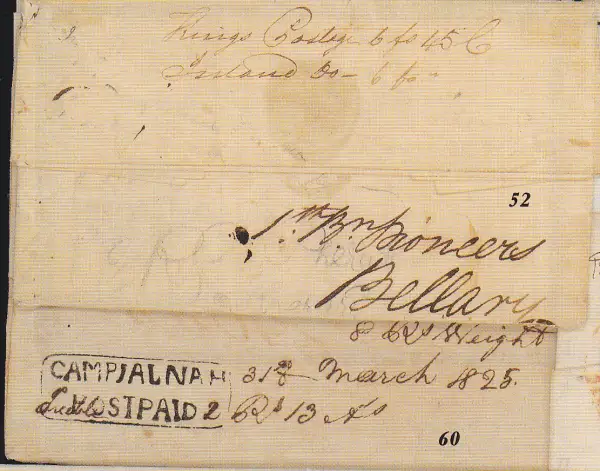 Kings Postage 6 fs 45 C
Inland Do - 6 fs
52
1st Bn Pioneers
Bellary
8 Rs Weight
CAMPJALNAH 31st March 1825.
POSTPAID 2 Rs 13 As
60